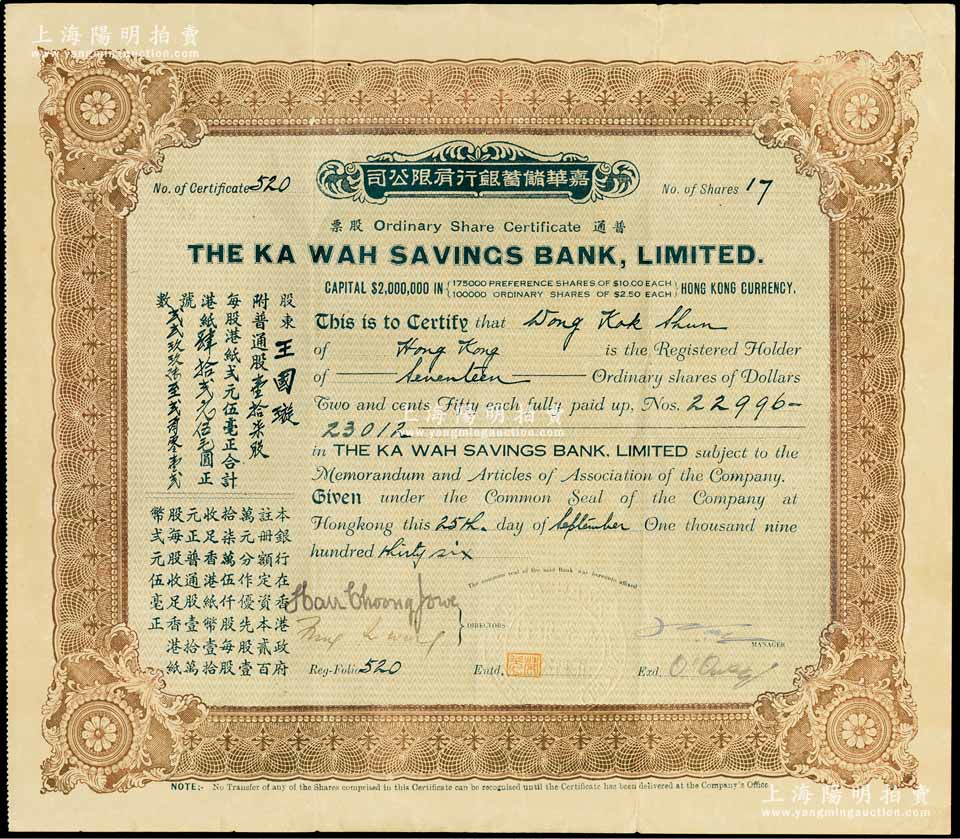 上海陽明拍賣
www.yangmingauction.com
嘉華儲蓄銀行有限公司
No. of Certificate 520
No. of Shares 17
普通 Ordinary Share Certificate 股票
THE KA WAH SAVINGS BANK, LIMITED.
CAPITAL $2,000,000 IN { 175000 PREFERENCE SHARES OF $10.00 EACH
100000 ORDINARY SHARES OF $2.50 EACH } HONG KONG CURRENCY.
This is to Certify that Wong Kok Shun
of Hong Kong is the Registered Holder
of Seventeen Ordinary shares of Dollars
Two and cents Fifty each fully paid up, Nos. 22996-
23012
in THE KA WAH SAVINGS BANK, LIMITED subject to the
Memorandum and Articles of Association of the Company.
Given under the Common Seal of the Company at
Hongkong this 25th. day of September One thousand nine
hundred thirty six
股東王國璇
附普通股壹拾柒股
每股港紙弍元伍毫正合計
港紙肆拾弍元伍毛圓正
號
數
本銀行在香港政府
註冊額定資本貳百
萬元分作優先股壹
拾柒萬伍仟股每股
收足香港紙幣壹拾
元正普通股壹拾萬
股每股收足香港紙
幣弍元伍毫正
The common seal of the said Bank was hereunto affixed
DIRECTORS
MANAGER
Reg-Folio 520
Entd.
Exd.
NOTE:- No Transfer of any of the Shares comprised in this Certificate can be recognised until the Certificate has been delivered at the Company's Office.
上海陽明拍賣
www.yangmingauction.com
上海陽明拍賣
www.yangmingauction.com